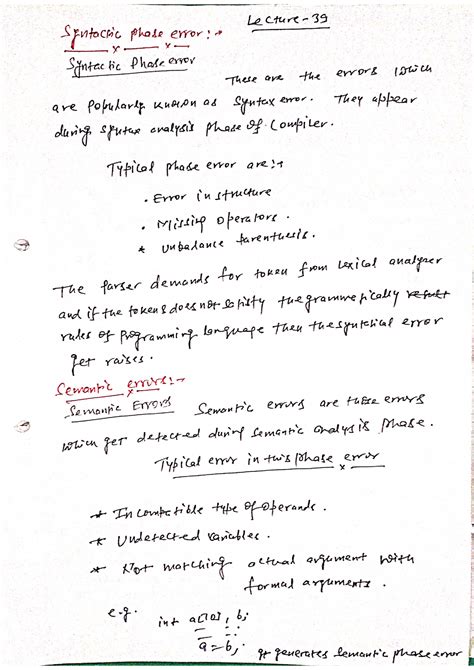 Lecture-39
Syntactic phase error:→
Syntactic Phase error
These are the errors which
are Popularly known as Syntax error. They appear
during syntax analysis phase of Compiler.
Typical phase error are:→
• Error in structure
• Missing operators.
* Unbalance Parenthesis.
The parser demands for token from lexical analyser
and if the tokens does not satisfy the grammatically
rules of programming language then the syntetical error
get raises.
Semantic errors:→
Semantic Errors Semantic errors are those errors
which get detected during semantic analysis phase.
Typical error in this phase error
* Incompatible type of operands.
* Undetected variables.
* Not matching actual argument with
formal arguments.
e.g. int a[10], b;
a=b; It generates semantic phase error